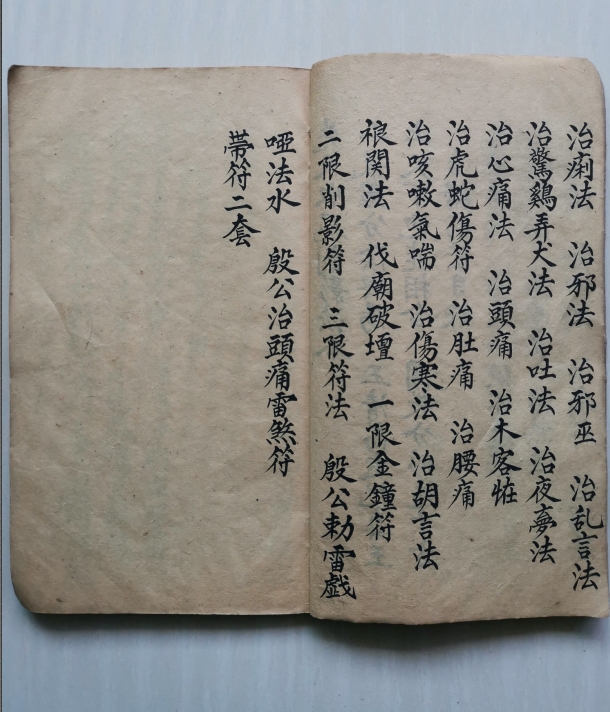 治痢法 治邪法 治邪巫 治乱言法
治驚鷄弄犬法 治吐法 治夜夢法
治心痛法 治頭痛 治木客恠
治虎蛇傷符 治肚痛 治腰痛
治咳嗽氣喘 治傷寒法 治胡言法
関法 伐廟破壇 一限金鐘符
二限削影符 三限符法 殷公勅雷戯
啞法水 殷公治頭痛雷煞符
帶符二套